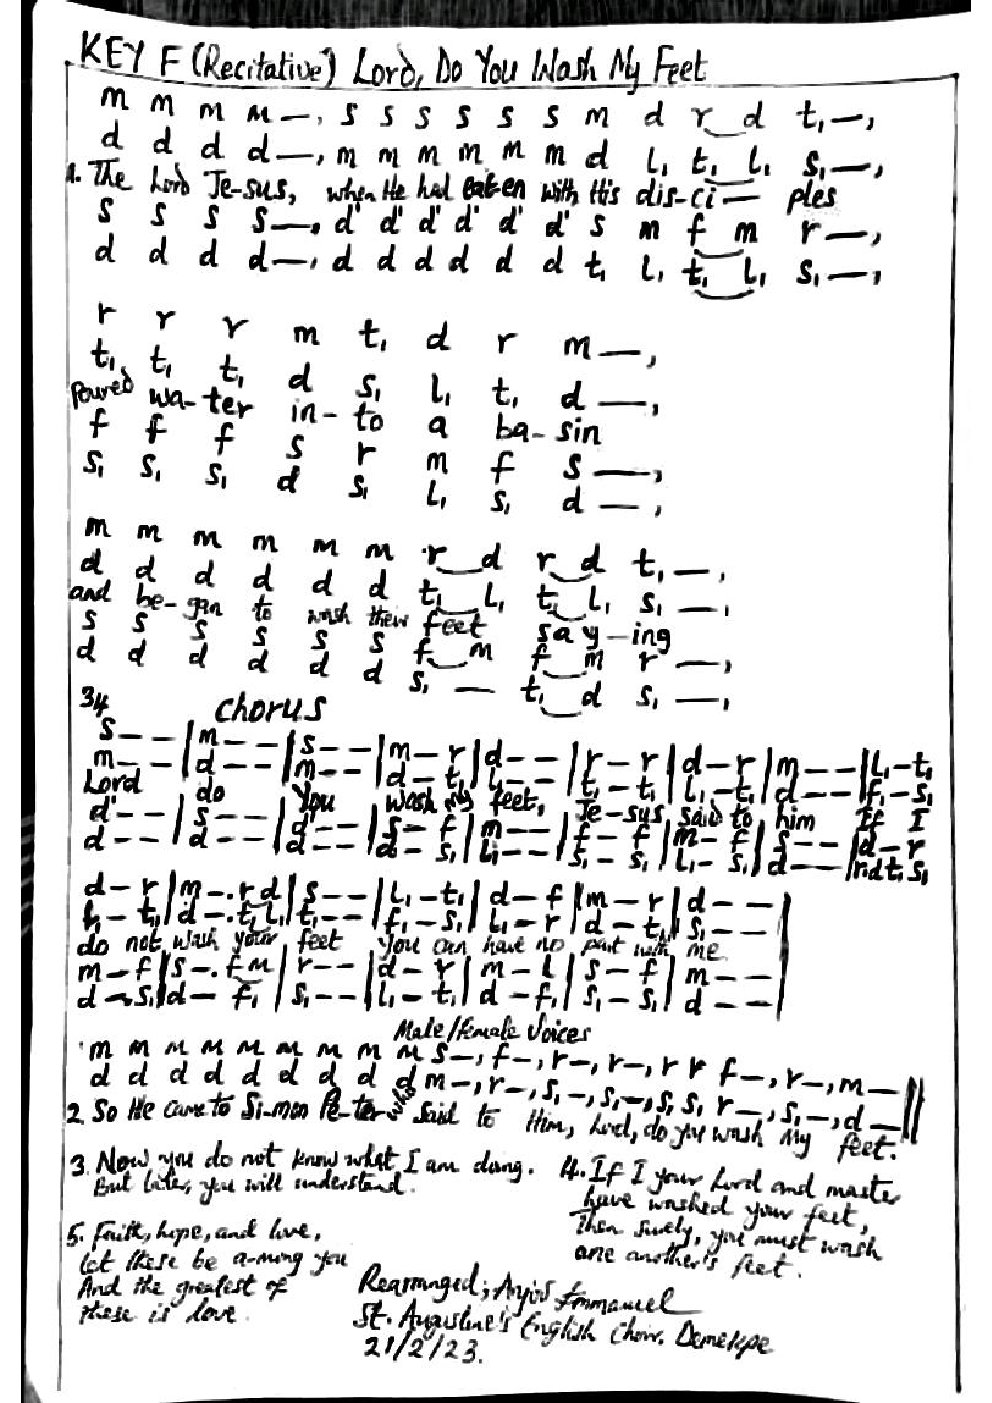 KEY F (Recitative) Lord, Do You Wash My Feet
m m m m —, s s s s s s m d r d t, —,
d d d d —, m m m m m m d l, t, l, s, —,
1. The Lord Je-sus, when He had eat-en with His dis-ci — ples
s s s s —, d' d' d' d' d' d' s m f m r —,
d d d d —, d d d d d d t, l, t, l, s, —,
r r r m t, d r m —,
t, t, t, d s, l, t, d —,
Poured wa-ter in-to a ba-sin
f f f s r m f s —,
s, s, s, d s, l, s, d —,
m m m m m m r d r d t, —,
d d d d d d t, l, t, l, s, —,
and be-gan to wash their feet say-ing
s s s s s s f m f m r —,
d d d d d d s, — t, d s, —,
34 Chorus
s – – | m – – | s – – | m – r | d – – | r – r | d – r | m – – | l, – t,
m – – | d – – | m – – | d – t, | l, – – | t, – t, | l, – t, | d – – | f, – s,
Lord do You wash my feet, Je-sus said to him If I
d' – – | s – – | d' – – | s – f | m – – | f – f | m – f | s – – | d – r
d – – | d – – | d – – | d – s, | l, – – | s, – s, | l, – s, | d – – | r d t, s,
d – r | m – . r d | s – – | l, – t, | d – f | m – r | d – –
l, – t, | d – . t, l, | t, – – | f, – s, | l, – r | d – t, | s, – –
do not wash your feet you can have no part with me.
m – f | s – . f m | r – – | d – r | m – l | s – f | m – –
d – s, | d – f, | s, – – | l, – t, | d – f, | s, – s, | d – –
Male/Female Voices
m m m m m m m m m s –, f –, r –, r –, r r f –, r –, m –
d d d d d d d d d m –, r –, s, –, s, –, s, s, r –, s, –, d –
2. So He came to Si-mon Pe-ter who said to Him, Lord, do you wash my feet.
3. Now you do not know what I am doing.
But later, you will understand.
4. If I your Lord and master
have washed your feet,
Then surely, you must wash
one another's feet.
5. Faith, hope, and love,
let these be a-mong you
And the greatest of
these is love.
Rearranged; Emmanuel
St. Augustine's English Choir,
21/2/23.